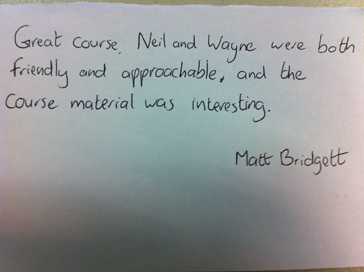 Great course. Neil and Wayne were both
friendly and approachable, and the
course material was interesting.
Matt Bridgett